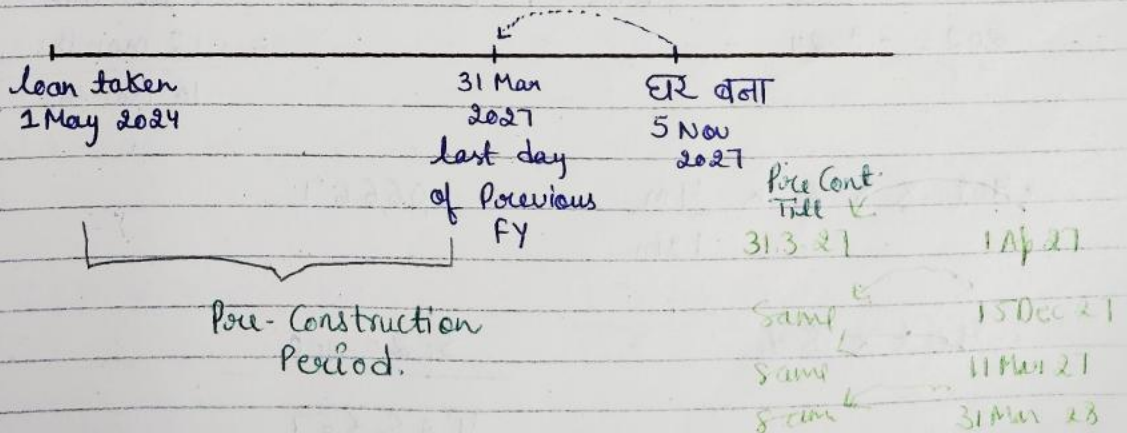 loan taken
1 May 2024
31 Mar
2027
last day
of Previous
FY
घर बना
5 Nov
2027
Pre-Construction
Period.
Pre Cont.
Till
31.3.27 1 Ap 27
Same 15 Dec 21
Same 11 Mar 21
Same 31 Mar 28